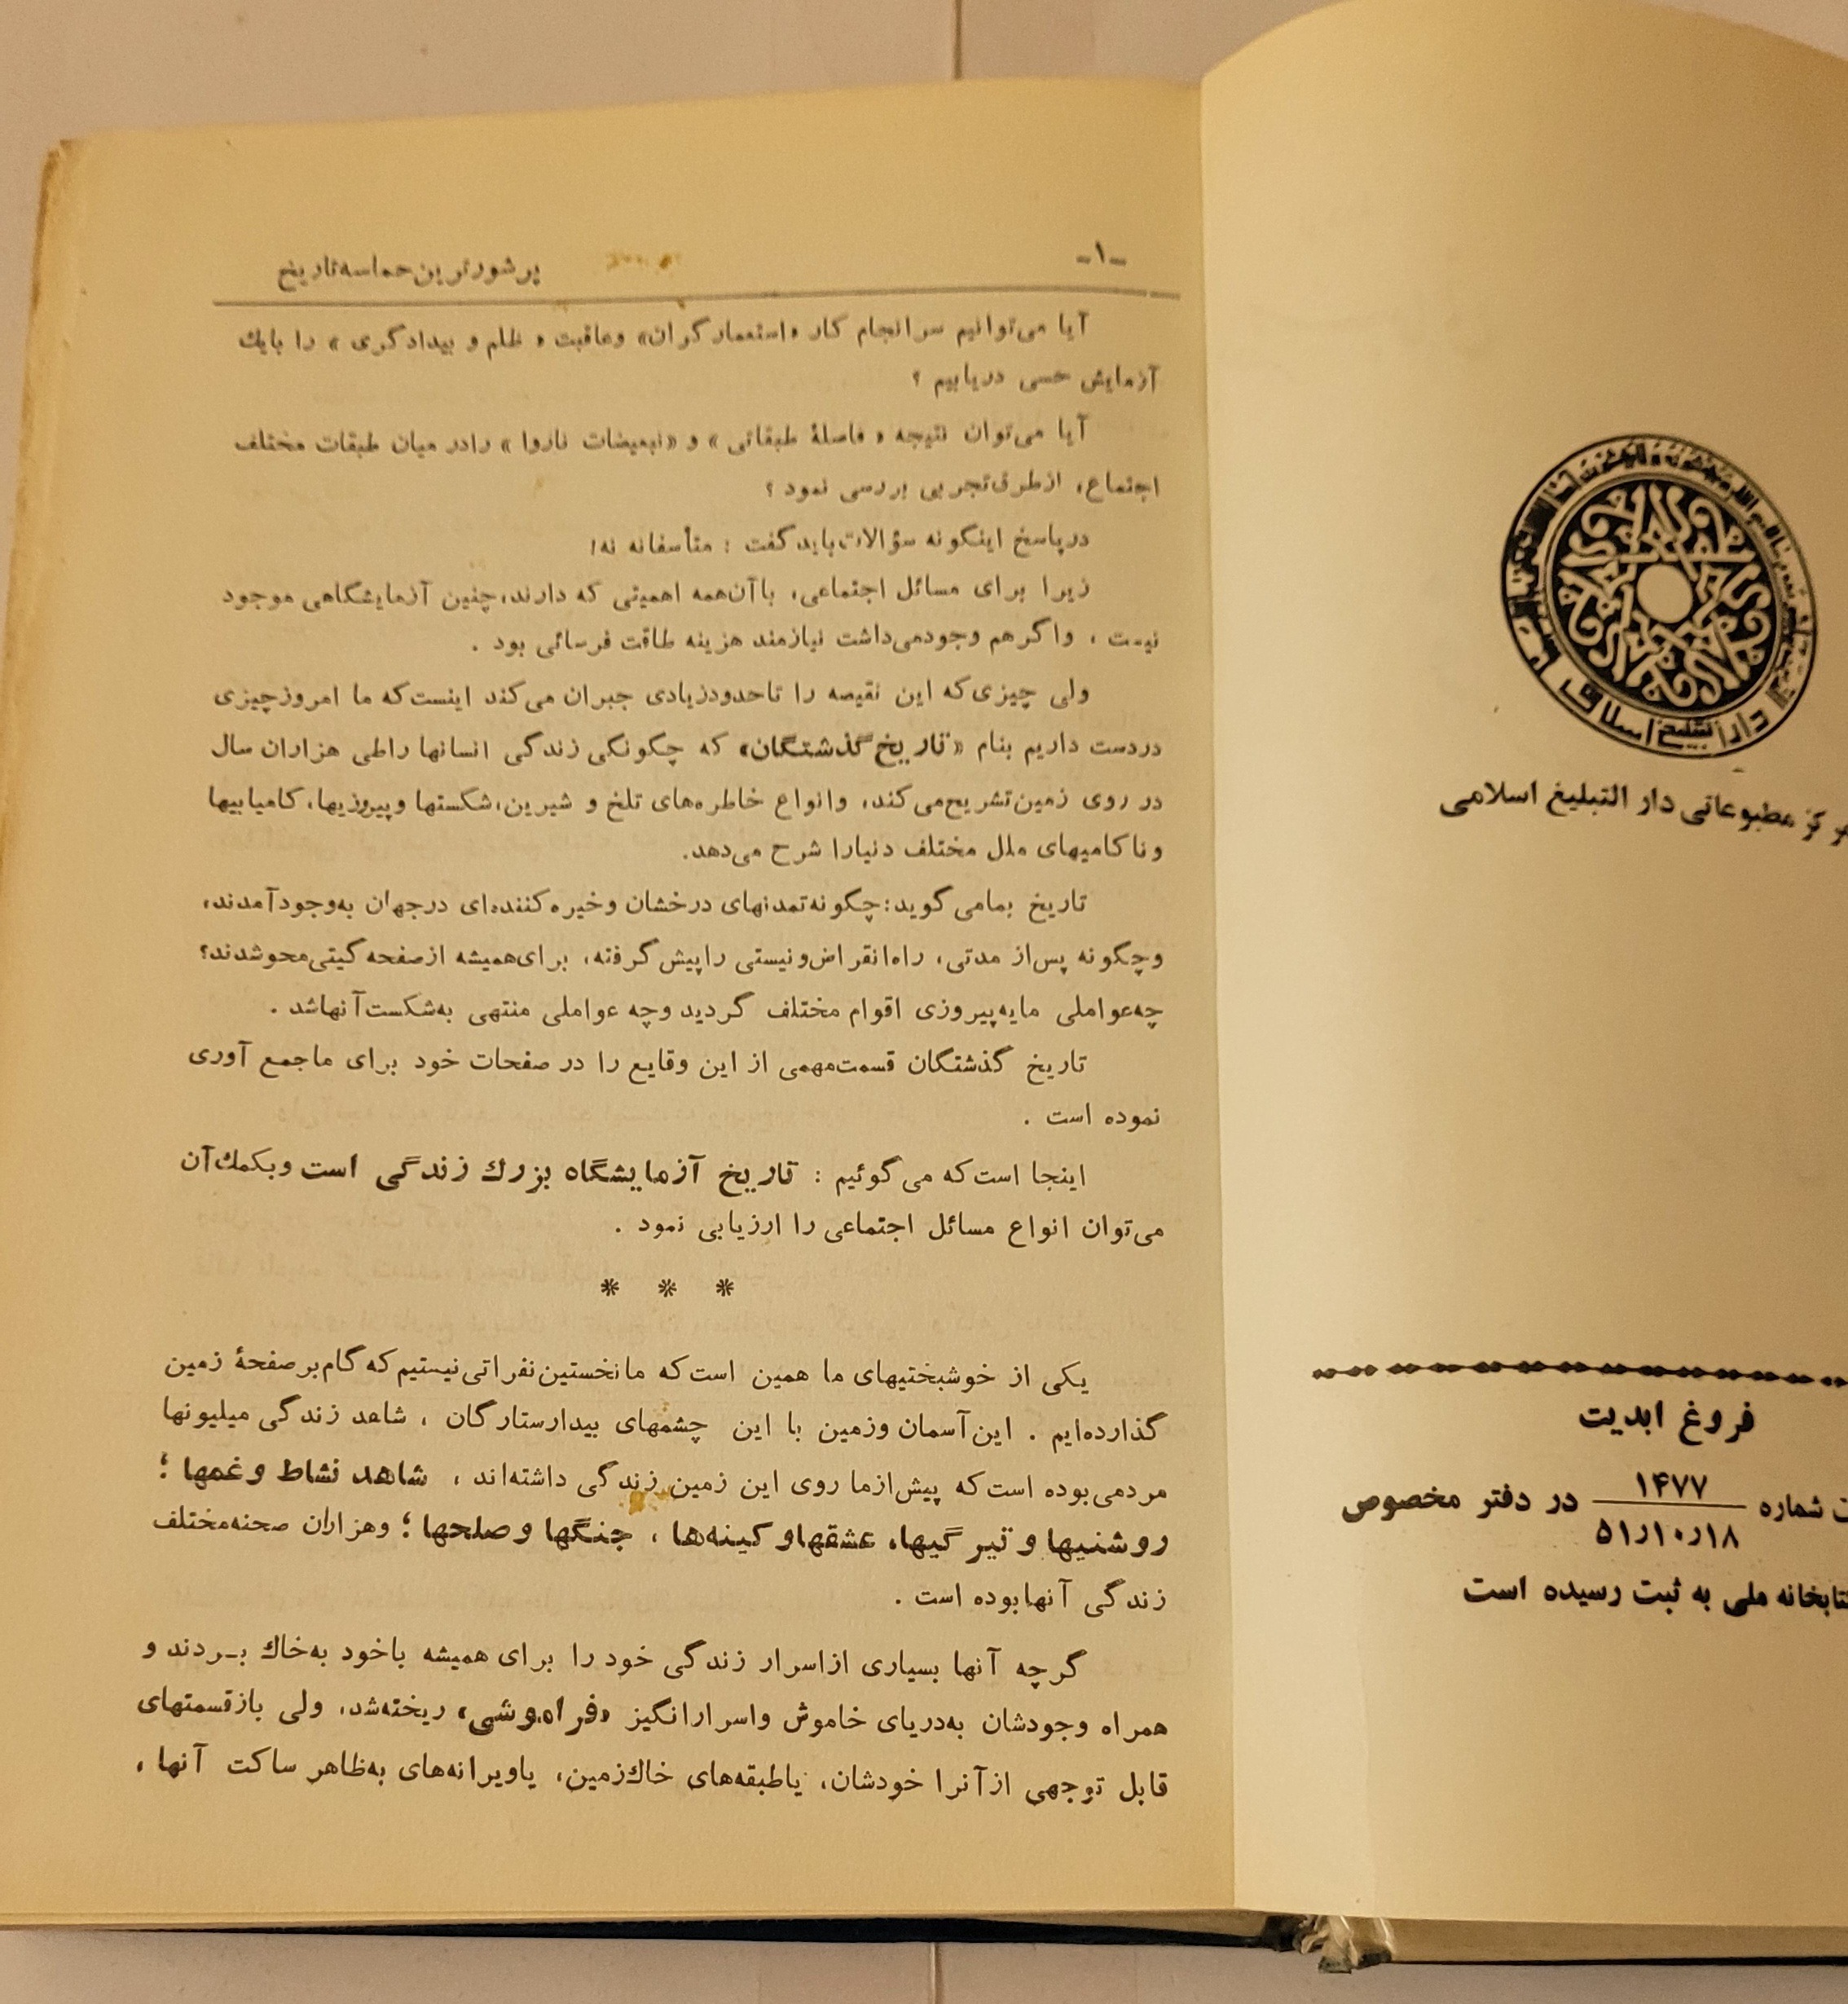 مرکز مطبوعاتی دار التبلیغ اسلامی
فروغ ابدیت
شماره ۱۴۷۷ در دفتر مخصوص
۵۱ر۱۰ر۱۸
کتابخانه ملی به ثبت رسیده است
-۱-
پرشورترین حماسه تاریخ
آیا می‌توانیم سرانجام کار «استعمارگران» وعاقبت « ظلم و بیدادگری » را بایك
آزمایش حسی دریابیم ؟
آیا می‌توان نتیجه « فاصلهٔ طبقاتی » و «تبعیضات ناروا » رادر میان طبقات مختلف
اجتماع، ازطرق‌تجربی بررسی نمود ؟
درپاسخ اینگونه سؤالات‌باید گفت : متأسفانه نه!
زیرا برای مسائل اجتماعی، باآن‌همه اهمیتی که دارند،چنین آزمایشگاهی موجود
نیست ، واگرهم وجودمی‌داشت نیازمند هزینه طاقت فرسائی بود .
ولی چیزی‌که این نقیصه را تاحدودزیادی جبران می‌کند اینست‌که ما امروزچیزی
دردست داریم بنام «تاریخ گذشتگان» که چگونگی زندگی انسانها راطی هزاران سال
در روی زمین‌تشریح‌می‌کند، وانواع خاطره‌های تلخ و شیرین،شکستها وپیروزیها،کامیابیها
وناکامیهای ملل مختلف دنیارا شرح می‌دهد.
تاریخ بمامی‌گوید:چگونه‌تمدنهای درخشان وخیره‌کننده‌ای درجهان به‌وجودآمدند،
وچگونه پس‌از مدتی، راه‌انقراض‌ونیستی راپیش‌گرفته، برای‌همیشه ازصفحه‌گیتی‌محوشدند؟
چه‌عواملی مایه‌پیروزی اقوام مختلف گردید وچه عواملی منتهی به‌شکست‌آنهاشد .
تاریخ گذشتگان قسمت‌مهمی از این وقایع را در صفحات خود برای ماجمع آوری
نموده است .
اینجا است‌که می‌گوئیم : تاریخ آزمایشگاه بزرك زندگی است وبکمك‌آن
می‌توان انواع مسائل اجتماعی را ارزیابی نمود .
* * *
یکی از خوشبختیهای ما همین است‌که مانخستین‌نفراتی‌نیستیم‌که‌گام‌برصفحهٔ زمین
گذارده‌ایم . این‌آسمان وزمین با این چشمهای بیدارستارگان ، شاهد زندگی میلیونها
مردمی‌بوده است‌که پیش‌ازما روی این زمین زندگی داشته‌اند ، شاهد نشاط وغمها ؛
روشنیها و تیرگیها، عشقهاو کینه‌ها ، جنگها وصلحها ؛ وهزاران صحنه‌مختلف
زندگی آنهابوده است .
گرچه آنها بسیاری ازاسرار زندگی خود را برای همیشه باخود به‌خاك بـردند و
همراه وجودشان به‌دریای خاموش واسرارانگیز «فراموشی» ریخته‌شد، ولی بازقسمتهای
قابل توجهی ازآنرا خودشان، یاطبقه‌های خاك‌زمین، یاویرانه‌های به‌ظاهر ساکت آنها ،